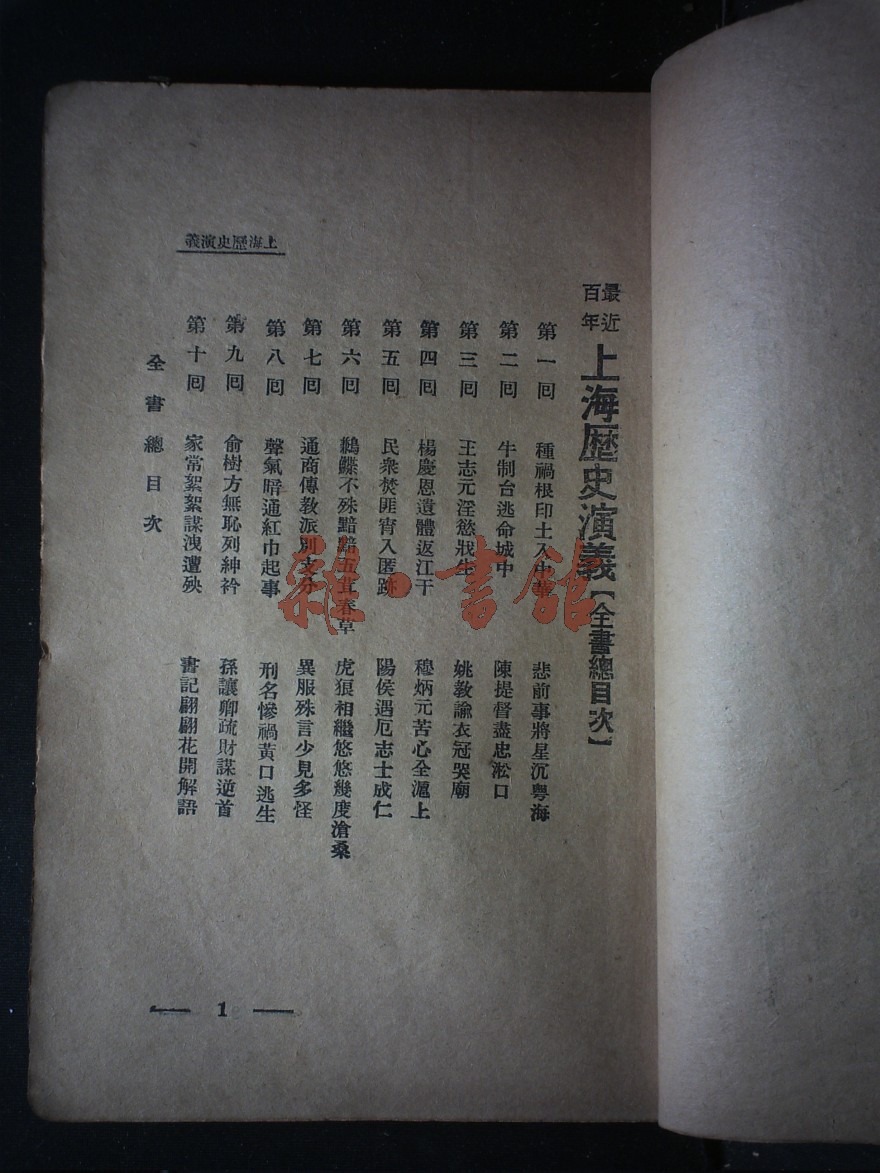 上海歷史演義
最近百年 上海歷史演義【全書總目次】
第一囘 種禍根印土入中華 悲前事將星沉粤海
第二囘 牛制台逃命城中 陳提督盡忠淞口
第三囘 王志元淫慾戕生 姚敎諭衣冠哭廟
第四囘 楊慶恩遺體返江干 穆炳元苦心全滬上
第五囘 民衆焚匪宵入匿跡 陽侯遇厄志士成仁
第六囘 鶼鰈不殊黯黯五茸春草 虎狼相繼悠悠幾度滄桑
第七囘 通商傳敎派別支分 異服殊言少見多怪
第八囘 聲氣暗通紅巾起事 刑名慘禍黃口逃生
第九囘 俞樹方無恥列紳衿 孫讓卿疏財謀逆首
第十囘 家常絮絮謀洩遭殃 書記翩翩花開解語
全書總目次
1
雜·書館